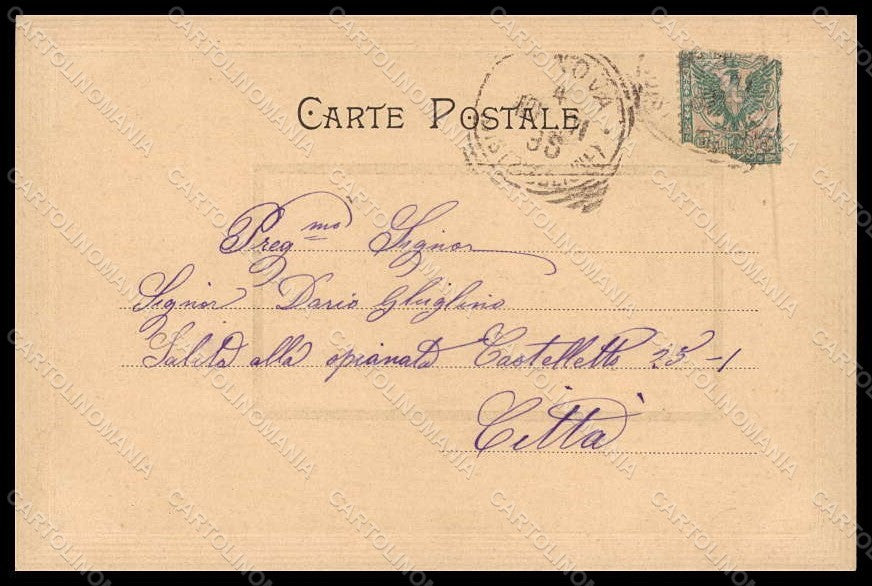 CARTE POSTALE
NOVA
4
Preg.mo Signor
Signor Dario Ghiglino
Salita alla spianata Castelletto 23-1
Città
CARTOLINOMANIA